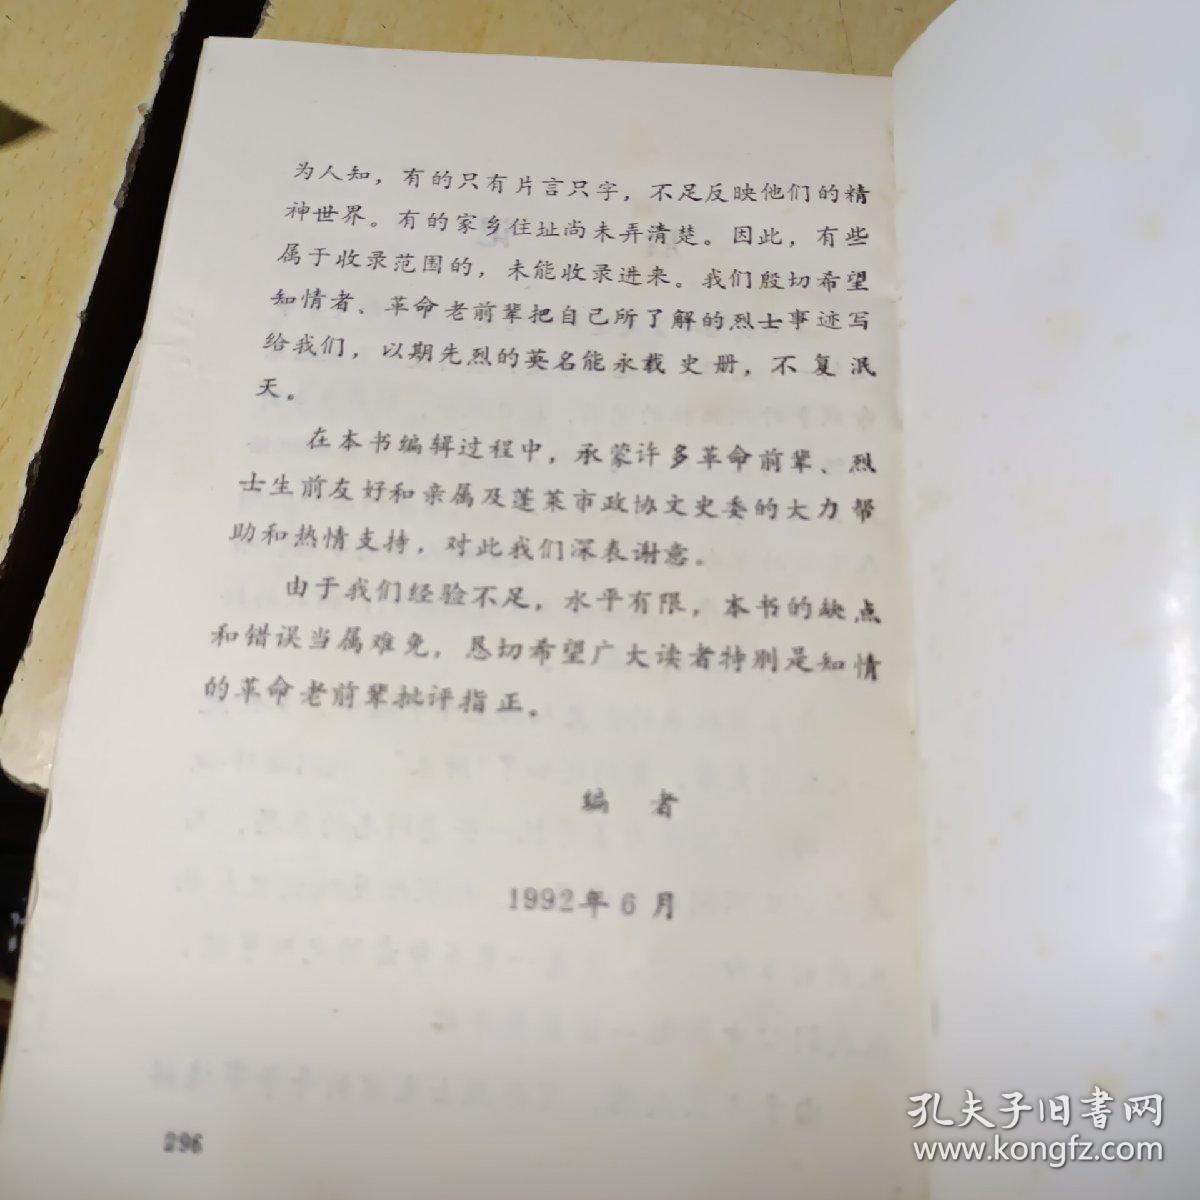 为人知，有的只有片言只字，不足反映他们的精
神世界。有的家乡住址尚未弄清楚。因此，有些
属于收录范围的，未能收录进来。我们殷切希望
知情者、革命老前辈把自己所了解的烈士事迹写
给我们，以期先烈的英名能永载史册，不复泯
天。
在本书编辑过程中，承蒙许多革命前辈、烈
士生前友好和亲属及蓬莱市政协文史委的大力帮
助和热情支持，对此我们深表谢意。
由于我们经验不足，水平有限，本书的缺点
和错误当属难免，恳切希望广大读者特别是知情
的革命老前辈批评指正。
编 者
1992年6月
296
孔夫子旧书网
www.kongfz.com